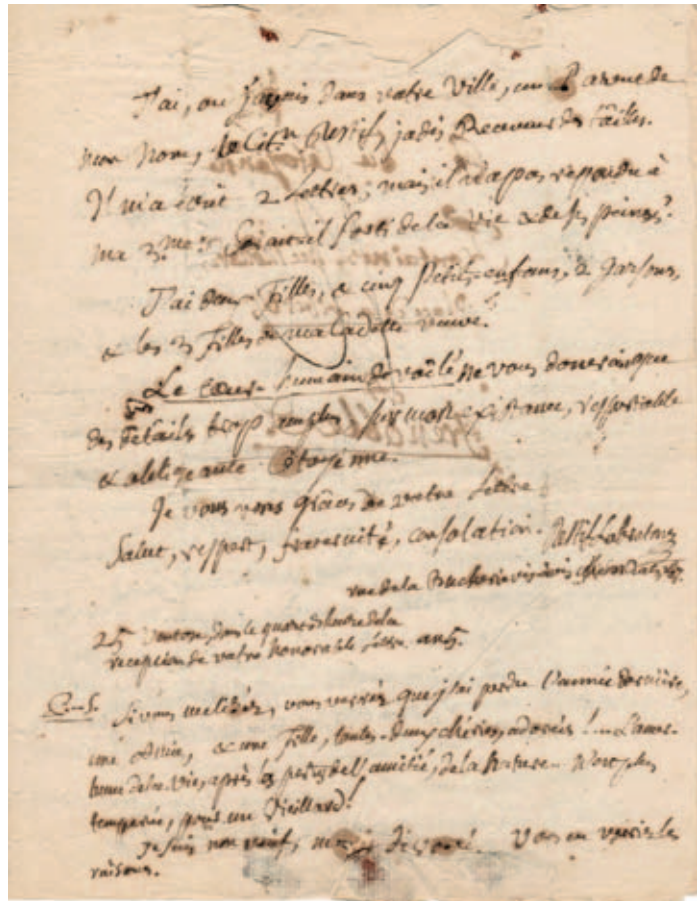 J'ai, ou j'avais dans votre Ville, un Parent de
mon nom, le Cit.n Restif, jadis Receveur des tailles.
Il m'a écrit 2 Lettres; mais il n'a pas répondu à
ma 2.me. Serait-il sorti de la vie & de ses peines?
J'ai deux Filles, & cinq Petits-enfans, 2 garsons,
& les 3 Filles de ma cadette veuve.
Le Cœur-humain dévoilé ne vous donera que
des détails trop amples sur mon existance, respectable
& obligeante Citoyenne.
Je vous rens grâces de votre Lettre
Salut, respect, fraternité, consolation. Restif Labretone
rue de la Bucherie
25 Ventose, dans le quard d'heure de la
reception de votre honorable Lettre. an 5.
P.-S. Si vous me lisez, vous verrez que j'ai perdu l'année dernière,
une Amie, & une Fille, toutes-deux chéries, adorées!
de la Vie, après les pertes de l'amitié, de la Nature. N'est plus
pour un Vieillard!
Je suis non veuf, mais divorcé. Vous en verrez les
raisons.